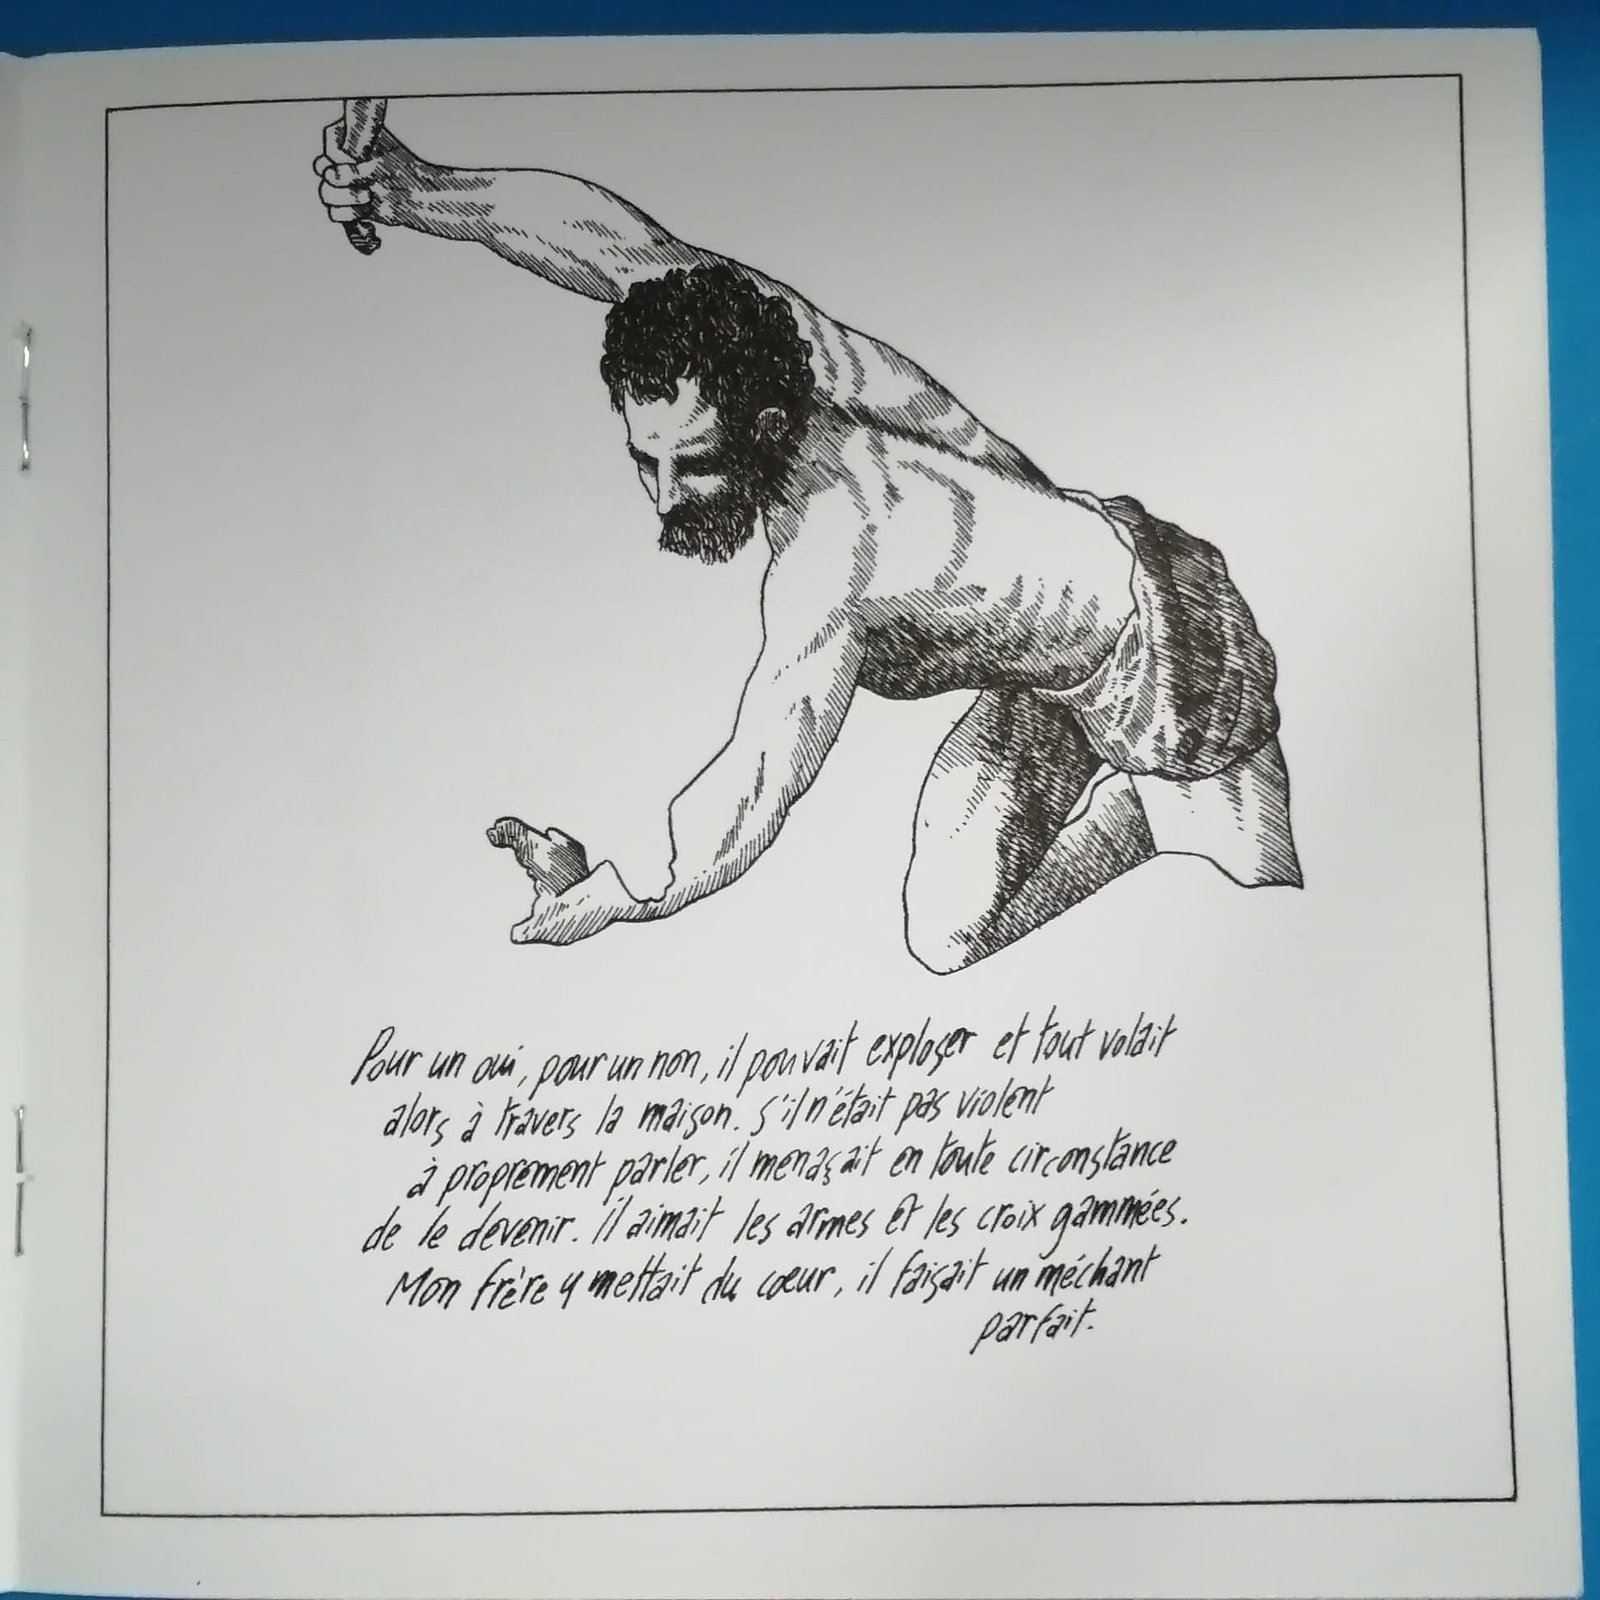 Pour un oui, pour un non, il pouvait exploser et tout volait
alors à travers la maison. S'il n'était pas violent
à proprement parler, il menaçait en toute circonstance
de le devenir. Il aimait les armes et les croix gammées.
Mon frère y mettait du cœur, il faisait un méchant
parfait.